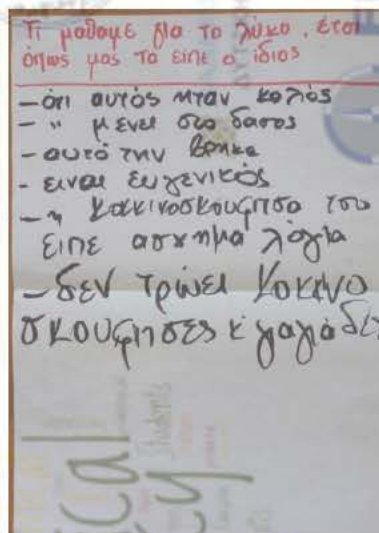 Τι μαθαμε για το λύκο, έτσι
όπως μας τα είπε ο ίδιος
- ότι αυτός ηταν καλός
- " μενει στο δασος
- αυτό την βρηκα
- ειναι ευγενικός
- η Κοκκινοσκουφιτσα του
ειπε ασχημα λόγια
- δεν τρώει Κοκινο
σκουφησες κ γιαγιάδες
Students